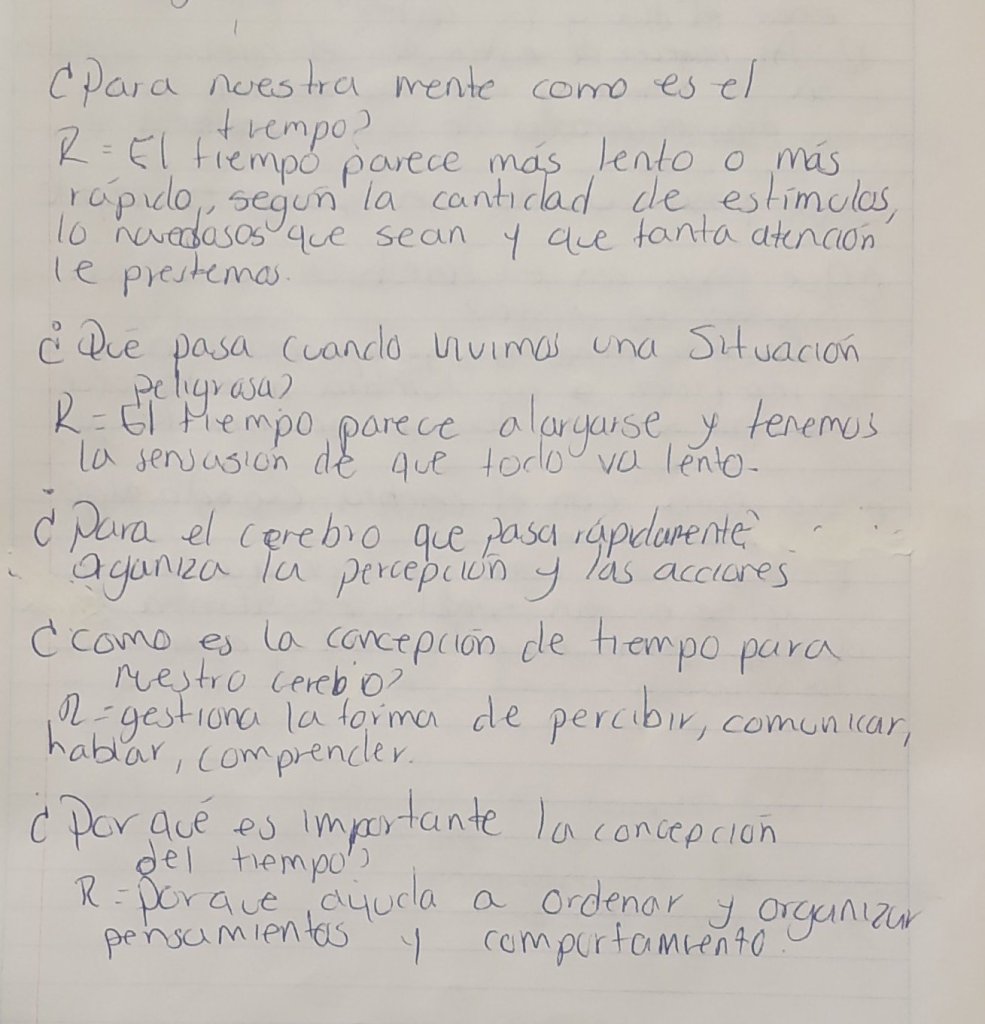 ¿Para nuestra mente como es el
tiempo?
R = El tiempo parece más lento o más
rápido, según la cantidad de estímulos,
lo novedosos que sean y que tanta atención
le prestemos.
¿Qué pasa cuando vivimos una Situación
peligrosa?
R = El tiempo parece alargarse y tenemos
la sensasión de que todo va lento.
¿Para el cerebro que pasa rápidamente?
Organiza la percepción y las acciones
¿como es la concepción de tiempo para
nuestro cerebro?
R = gestiona la forma de percibir, comunicar,
hablar, comprender.
¿Por qué es importante la concepción
del tiempo?
R = porque ayuda a ordenar y organizar
pensamientos y comportamiento.